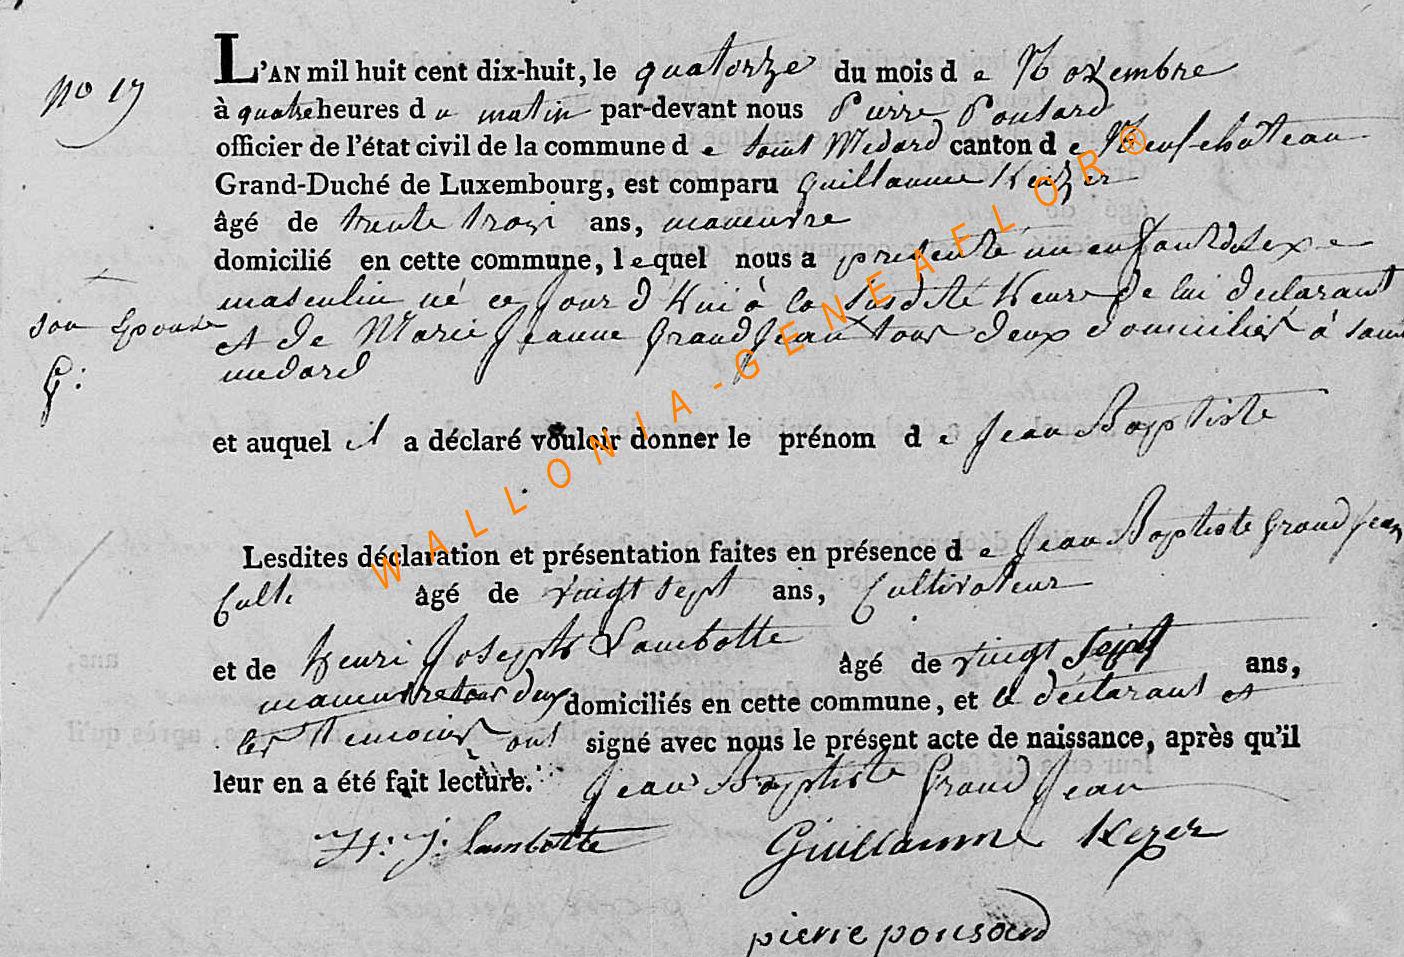 no 17
L'AN mil huit cent dix-huit, le quatorze du mois d e Novembre
à quatre heures d u matin par-devant nous Pierre Ponsard
officier de l'état civil de la commune d e saint Medard canton d e Neufchâteau
Grand-Duché de Luxembourg, est comparu Guillaume Keizer
âgé de trente trois ans, maneuvre
domicilié en cette commune, lequel nous a presenté un enfant de sexe
masculin né ce jour d'hui à la susdite heure de lui declarant
+ son epouse G:
et de Marie Jeanne Grandjean tous deux domiciliés à saint
medard
et auquel il a déclaré vouloir donner le prénom d e Jean Baptiste
Lesdites déclaration et présentation faites en présence d e Jean Baptiste Grandjean
Culti âgé de vingt sept ans, Cultivateur
et de Henri Joseph Lambotte âgé de vingt sept ans,
maneuvre tous deux domiciliés en cette commune, et le déclarant et
les temoins ont signé avec nous le présent acte de naissance, après qu'il
leur en a été fait lecture. Jean Baptiste Grand Jean
H: J: Lambotte Guillaume Kezer
pierre ponsard
WALLONIA-GENEAFLOR®